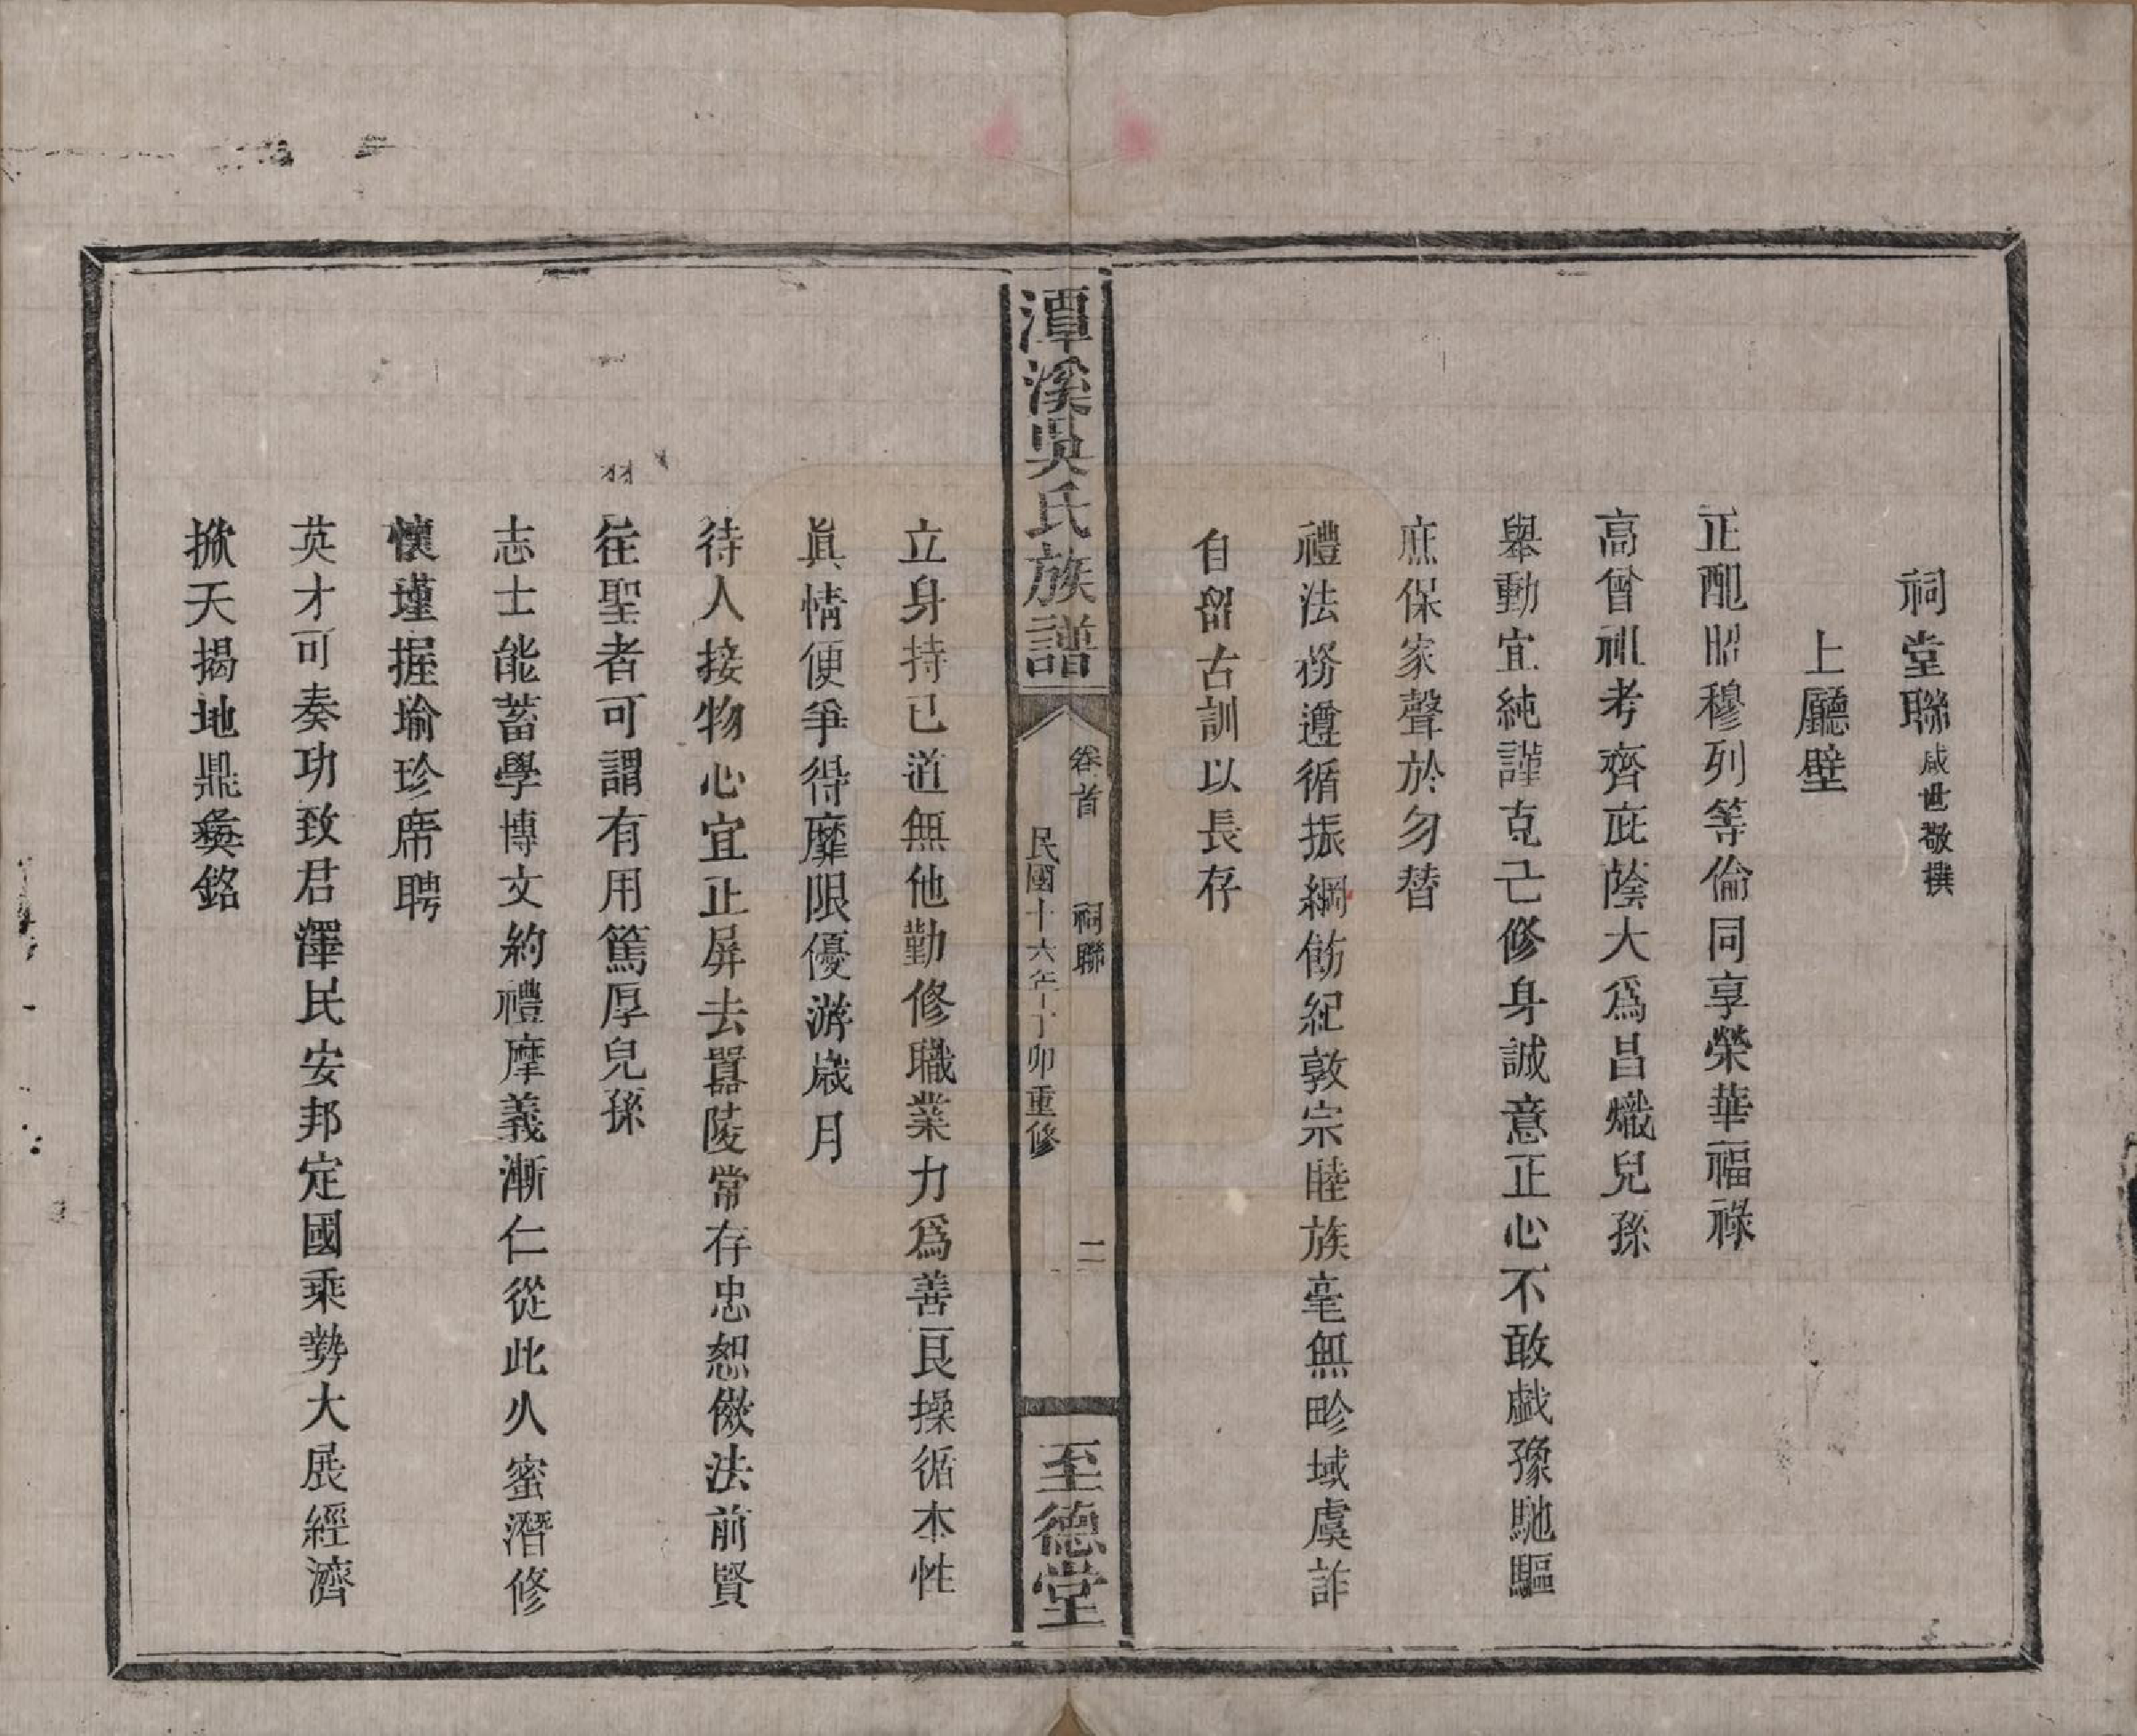 祠堂聯咸世敬撰
上廳壁
正配昭穆列等倫同享榮華福祿
高曾祖考齊庇蔭大爲昌熾兒孫
舉動宜純謹克己修身誠意正心不敢戱豫馳驅
庶保家聲於勿替
禮法務遵循振綱飭紀敦宗睦族毫無畛域虞詐
自留古訓以長存
潭溪吳氏族譜
卷首 祠聯 二
民國十六年丁卯重修
至德堂
立身持已道無他勤修職業力爲善良操循本性
眞情便爭得靡限優游歲月
待人接物心宜止屏去囂陵常存忠恕倣法前賢
往聖者可謂有用篤厚兒孫
志士能蓄學博文約禮摩義漸仁從此火蜜潛修
懷瑾握瑜珍席聘
英才可奏功致君澤民安邦定國乘勢大展經濟
掀天揭地鼎彝銘